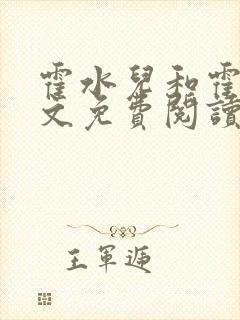 霍水兒和霍
文免費閱讀
王軍遞